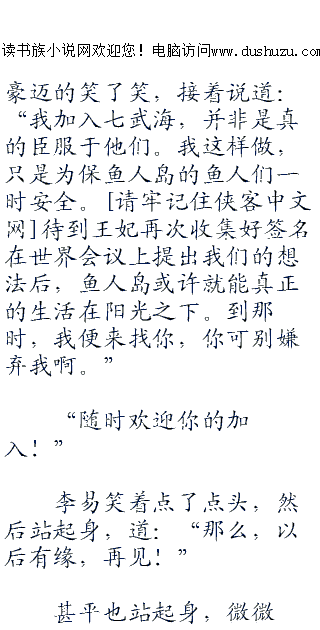 读书族小说网欢迎您！电脑访问www.dushuzu.com
豪迈的笑了笑，接着说道：
“我加入七武海，并非是真
的臣服于他们。我这样做，
只是为保鱼人岛的鱼人们一
时安全。[请牢记住侠客中文
网]待到王妃再次收集好签名
在世界会议上提出我们的想
法后，鱼人岛或许就能真正
的生活在阳光之下。到那
时，我便来找你，你可别嫌
弃我啊。”
“随时欢迎你的加
入！”
李易笑着点了点头，然
后站起身，道：“那么，以
后有缘，再见！”
甚平也站起身，微微